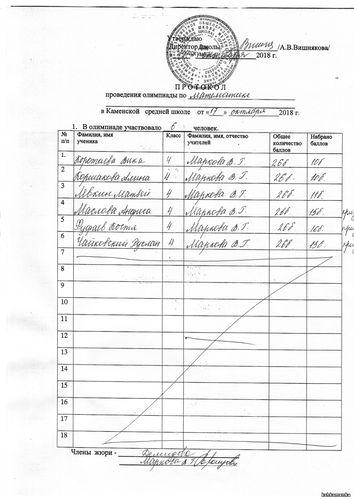 Утверждаю
Директор школы /А.В.Вишнякова/
2018 г.
ПРОТОКОЛ
проведения олимпиады по математике
в Каменской средней школе от «17» октября 2018 г.
1. В олимпиаде участвовало 6 человек.
№ п/п Фамилия, имя ученика Класс Фамилия, имя, отчество учителей Общее количество баллов Набрано баллов
1. Вика 4 Маркова В.Г. 26б 10б.
2 Коршакова Алина 4 Маркова В.Г. 26б. 10б.
3 Матвей 4 Маркова В.Г. 26б. 11б.
4 Маслова 4 Маркова В.Г. 26б. 15б.
5 Костя 4 Маркова В.Г. 26б 16б.
6 Чайковский Руслан 4 Маркова В.Г. 26б 13б.
7
8
9
10
11
12
13
14
15
16
17
18
Члены жюри -
Маркова